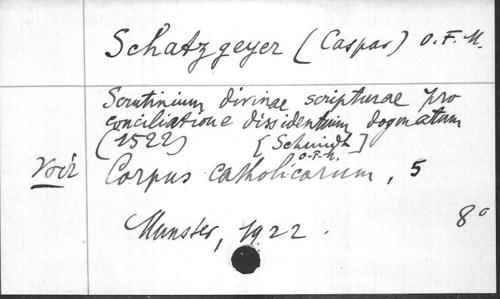 Schatzgeyer (Caspar) O.F.M.
Scrutinium divinae scripturae pro
conciliatione dissidentium dogmatum
(1522) [Schmidt]
O.F.M.
Voir Corpus catholicorum, 5
Munster, 1922. 8°